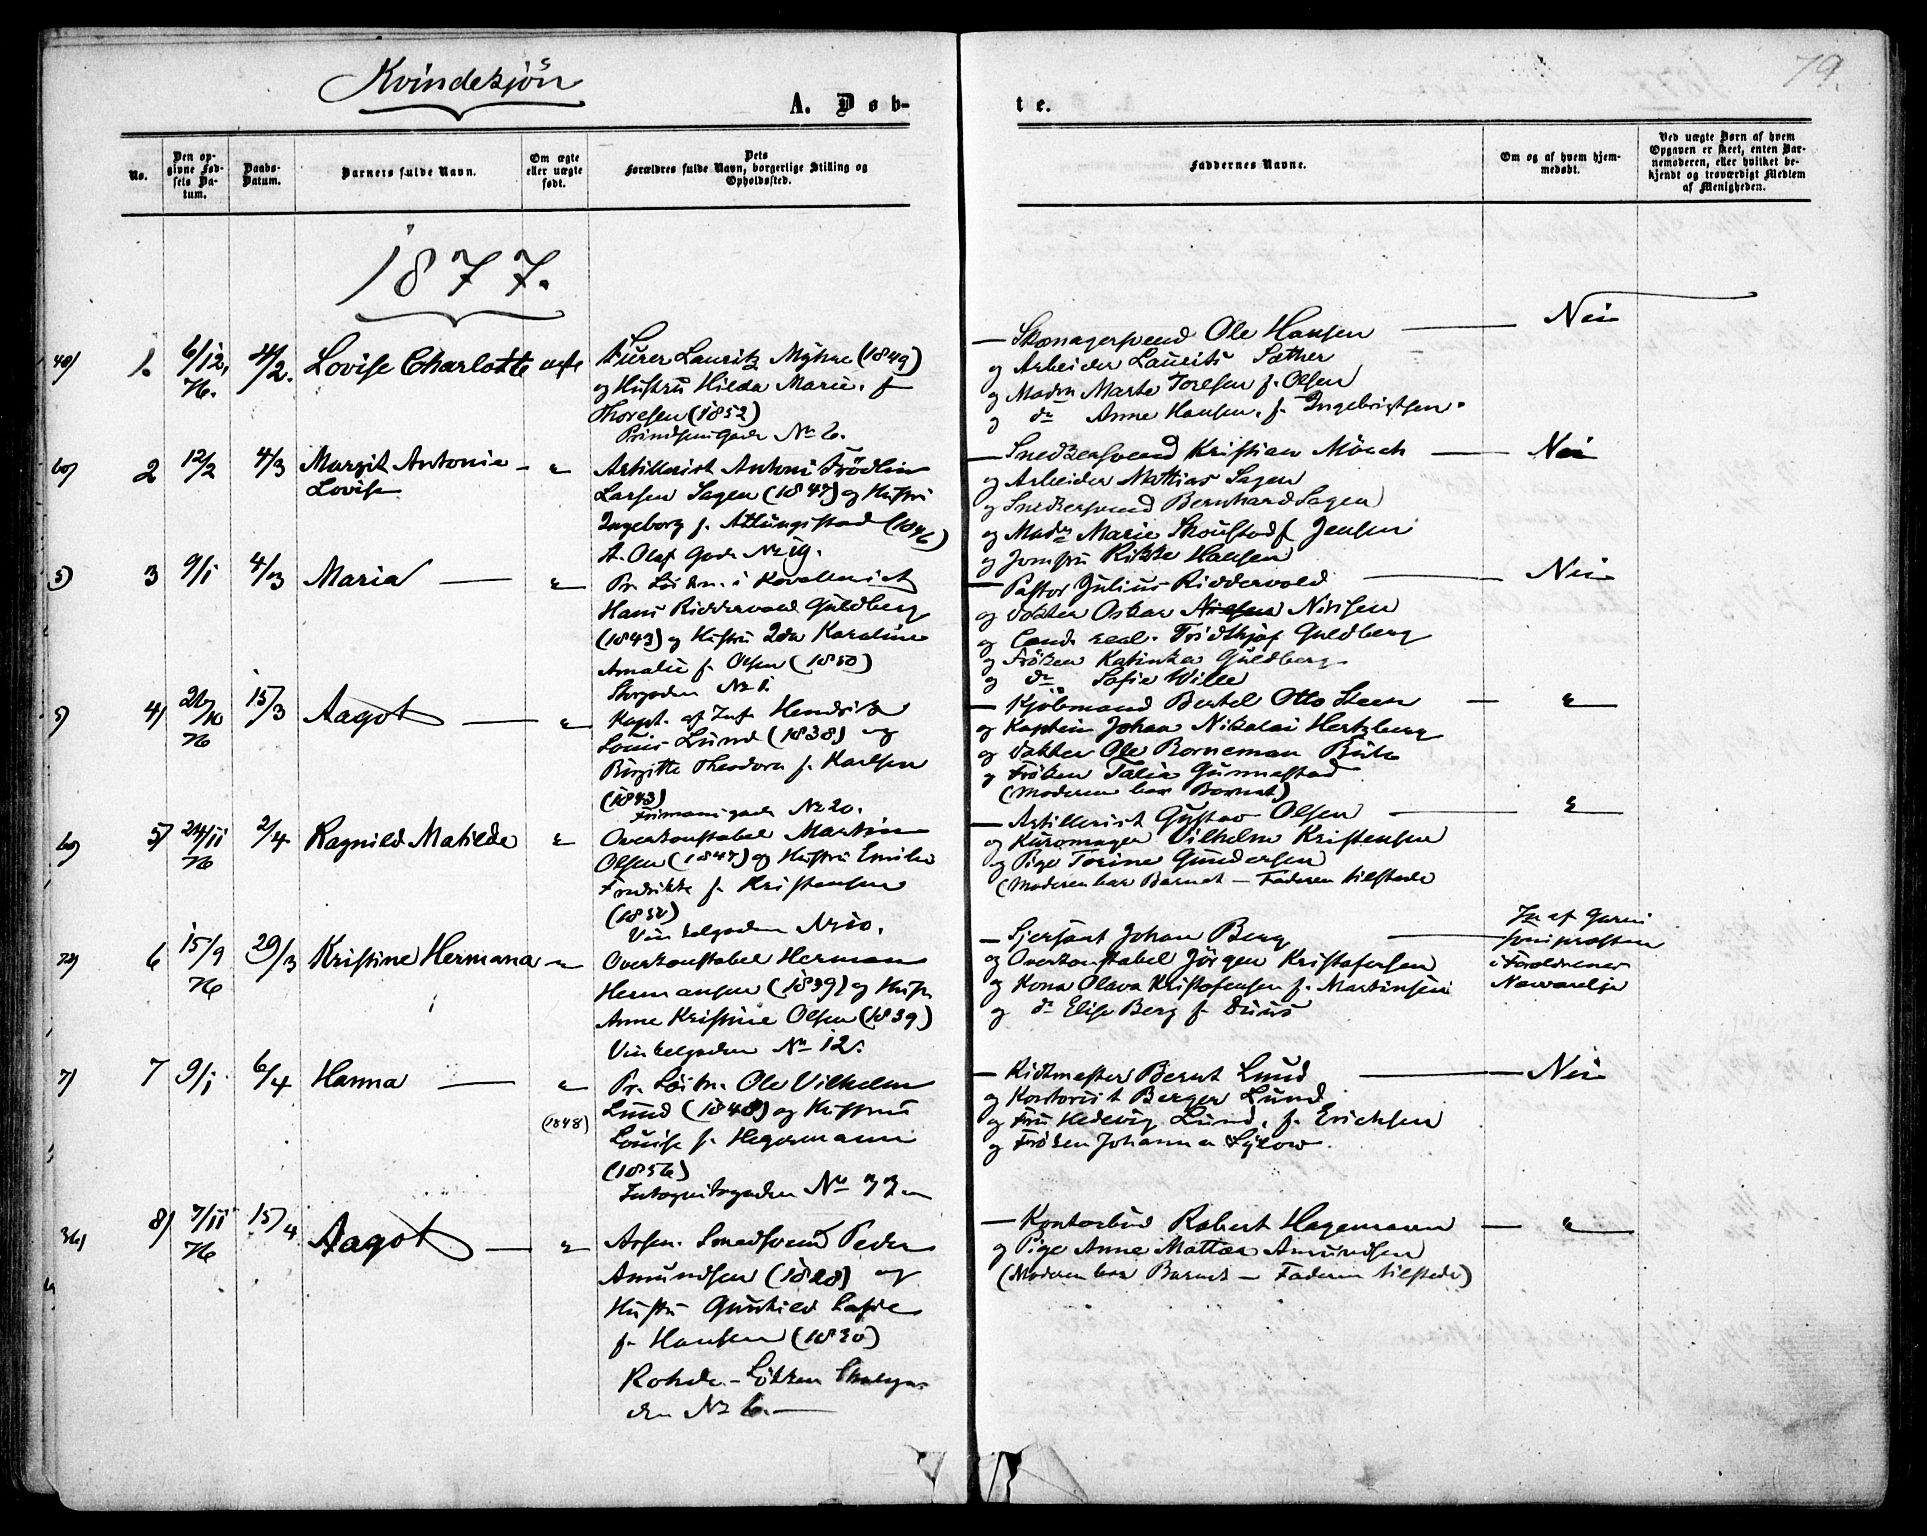 Kvindekjön
79.
A. Døb-
te.
No.
Den op-
givne Fød-
sels Da-
tum.
Daabs-
Datum.
Barnets fulde Navn.
Om ægte
eller uægte
født.
Dets
Forældres fulde Navn, borgerlige Stilling og
Opholdssted.
Faddernes Navne.
Om og af hvem hjem-
medøbt.
Ved uægte Børn af hvem
Opgaven er skeet, enten Bar-
nemoderen, eller hvilket be-
kjendt og troværdigt Medlem
af Menigheden.
1877.
1. 6/12, 76. 4/2. Lovise Charlotte ægte
Kurer Lauritz Myhre (1849)
og Hustru Hilda Marie. f
Thoresen (1852)
Prindsensgade No 6.
— Skomagersvend Ole Hansen — Nei
og Arbeider Laurits Sæther
og Madm Marte Toresen f. Olsen
og do Anne Hansen. f. Ingebrigtsen.
60) 2 12/2 4/3 Margit Antonie Lovise — "
Artillerist Antoni Frödlin
Larsen Sagen (1847) og Hustru
Ingeborg f. Attungstad (1846)
St. Olaf Gade No 19.
— Snedkersvend Kristian Mönch — Nei
og Arbeider Mattias Sagen
og Snedkersvend Bernhard Sagen
og Madm Marie Skoustad f Jensen
og Jomfru Rikke Hansen
5) 3 9/1 4/3 Maria — "
Pr. Löitn. i Kavalleriet
Hans Riddervold Guldberg
(1843) og Hustru Ida Karoline
Amalie f. Olsen (1850)
Storgaden No 1.
— Pastor Julius Riddervold — Nei
og Dokter Oskar Nissen
og Cand. real. Fridthjof Guldberg
og Fröken Katinka Guldberg
og do Sofie Wille
5) 4) 26/10 76 15/3 Aagot — "
Kapt. af Inf. Hendrik
Louis Lund (1838) og
Birgitte Theodora f. Karlsen
(1843)
Frimansgade No 20.
— Kjöbmand Bertel Otto Steen — "
og Kaptein Johan Nikolai Hertzberg
og Dokter Ole Borneman Bull
og Fröken Talia Gunnestad
(Moderen bar Barnet)
60) 5) 24/11 76 2/4 Ragnild Matilde "
Overkonstabel Martin
Olsen (1847) og Hustru Emilie
Fredrikke f. Kristensen
(1852)
Vinkelgaden No 10.
— Artillerist Gustav Olsen — "
og Kuromager Vilhelm Kristensen
og Pige Torine Gundersen
(Moderen bar Barnet — Faderen tilstede
72) 6 15/9 76 29/3 Kristine Hermana — "
Overkonstabel Herman
Hermansen (1839) og Hustr.
Anne Kristine Olsen (1839)
Vinkelgaden No 12.
— Sjersant Johan Berg —
og Overkonstabel Jörgen Kristofersen
og Kona Olava Kristofensen f. Martinsen
og do Elise Berg f. Duus
Ja af Garni
sonspræsten
i Forældrenes
Nærværelse
7) 7 9/1 6/4 Hanna — "
Pr. Löitn. Ole Vilhelm
Lund (1848) og Hustru
(1848)
Louise f. Hegermann
(1856)
Intognitsgaden No 33
— Ridtmester Bernt Lund — Nei
og Kontorist Berger Lund
og Fru Hedevig Lund, f. Erichsen
og Fröken Johanna Sylow.
36) 8) 7/11 76 15/4 Aagot — "
Arsen. Smedsvend Peder
Amundsen (1828) og
Hustru Gunhild Lasse
f. Hansen (1830)
Rohde-Lökken
den No 6. —
— Kontorbud Robert Hagemann — "
og Pige Anne Mattea Amundsen
(Moderen bar Barnet — Faderen tilstede)